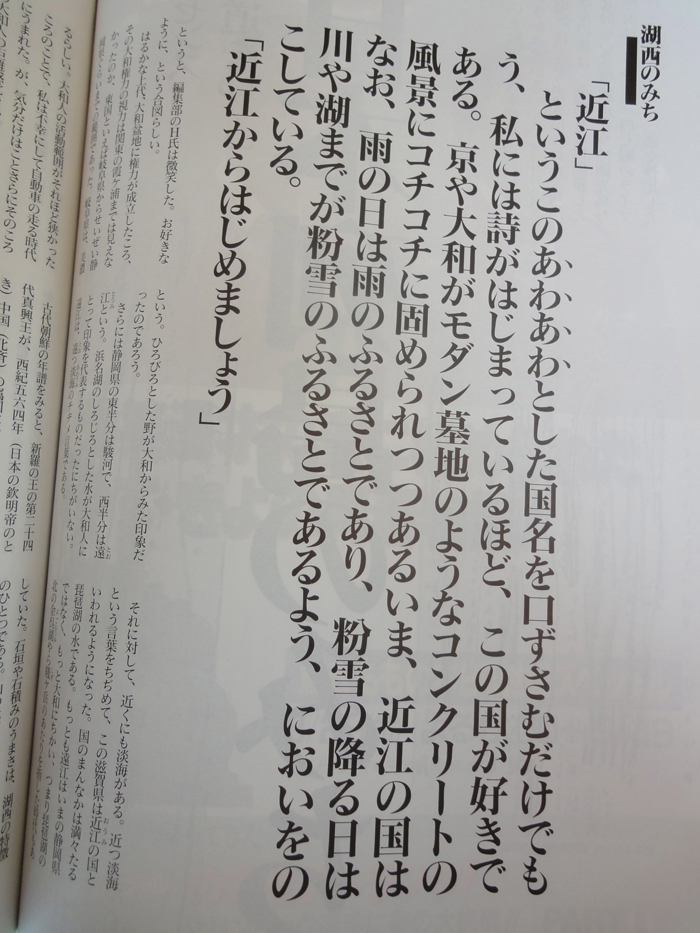 湖西のみち
「近江」
というこのあわあわとした国名を口ずさむだけでも
う、私には詩がはじまっているほど、この国が好きで
ある。京や大和がモダン墓地のようなコンクリートの
風景にコチコチに固められつつあるいま、近江の国は
なお、雨の日は雨のふるさとであり、粉雪の降る日は
川や湖までが粉雪のふるさとであるよう、においをの
こしている。
「近江からはじめましょう」
というと、編集部のH氏は微笑した。お好きな
ように、という合図らしい。
はるかな上代、大和盆地に権力が成立したころ、
その大和権力の視力は関東の霞ヶ浦までは見えな
かったのか、東国といえば岐阜県からせいぜい静
という。ひろびろとした野が大和からみた印象だ
ったのであろう。
さらには静岡県の東半分は駿河で、西半分は遠
江という。浜名湖のしろじろとした水が大和人に
とって印象を代表するものだったにちがいない。
それに対して、近くにも淡海がある。近つ淡海
という言葉をちぢめて、この滋賀県は近江の国と
いわれるようになった。国のまんなかは満々たる
琵琶湖の水である。もっとも遠江はいまの静岡県
ではなく、もっと大和にちかい、つまり琵琶湖の
らしい。大和人の活動範囲がそれほど狭かった
ころのことで、私は不幸にして自動車の走る時代
にうまれた。が、気分だけはことさらにそのころ
古代朝鮮の年譜をみると、新羅の王の第二十四
代真興王が、西紀五六四年（日本の欽明帝のと
していた。石垣や石積みのうまさは、湖西の特徴
のひとつである。